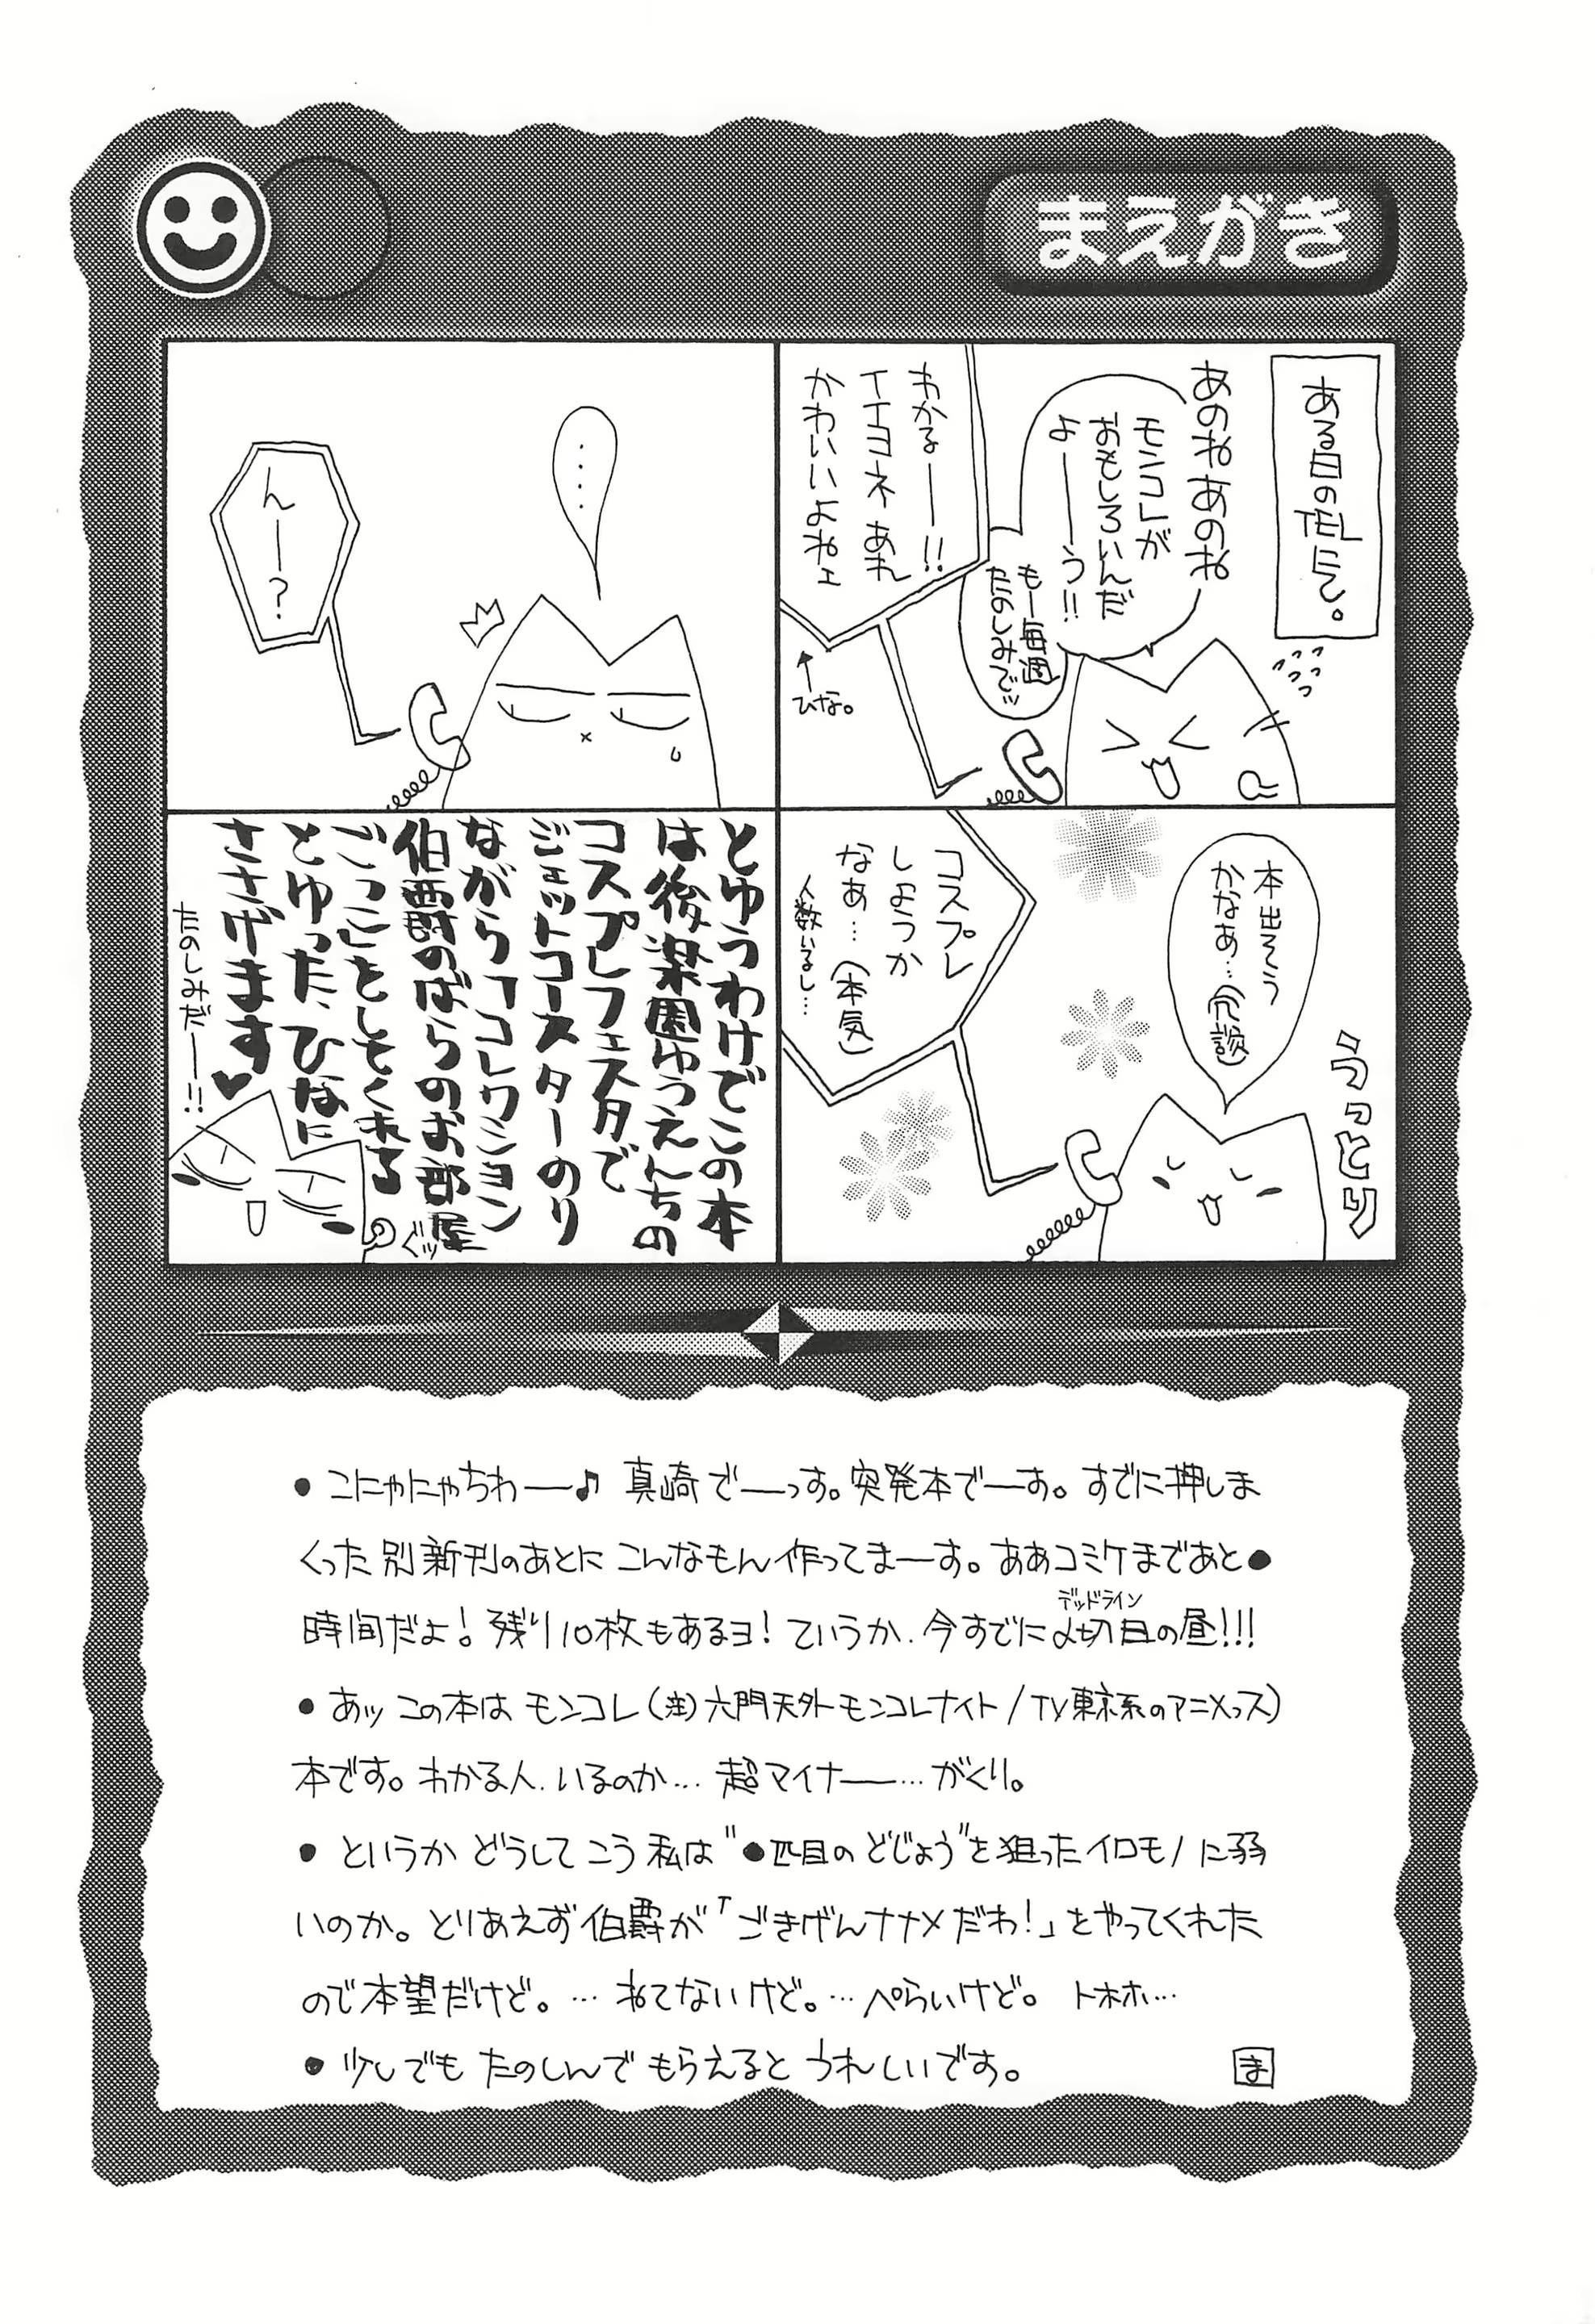 まえがき
ある日のTELにて。
あのねあのね
モンコレが
おもしろいんだ
よーーう!!
もー毎週
たのしみでッ
わかるーー!!
イイヨネあれ
かわいいよねェ
ひな。
うっとり
本出そう
かなあ…(冗談)
コスプレ
しようか
なあ…(本気)
人数いるし…
……
んー?
とゆうわけでこの本
は後楽園ゆうえんちの
コスプレフェスタで
ジェットコースターのり
ながら「コレクション
伯爵のばらのお部屋
ごっこ」をしてくれる
とゆった、ひなに
ささげます♥
たのしみだー!!
ぐッ
●こにゃにゃちわー♪ 真崎でーっす。突発本でーす。すでに押しま
くった別新刊のあとにこんなもん作ってまーす。ああコミケまであと●
デッドライン
時間だよ!残り10枚もあるヨ!ていうか、今すでに〆切日の昼!!!
●あッこの本はモンコレ(注)六門天外モンコレナイト/TV東京系のアニメっス)
本です。わかる人、いるのか…超マイナー…がくり。
●というかどうしてこう私は"●匹目のどじょう"を狙ったイロモノに弱
いのか。とりあえず伯爵が「ごきげんナナメだわ!」をやってくれた
ので本望だけど。…ねてないけど。…ぺらいけど。トホホ…
●少しでもたのしんでもらえるとうれしいです。
ま